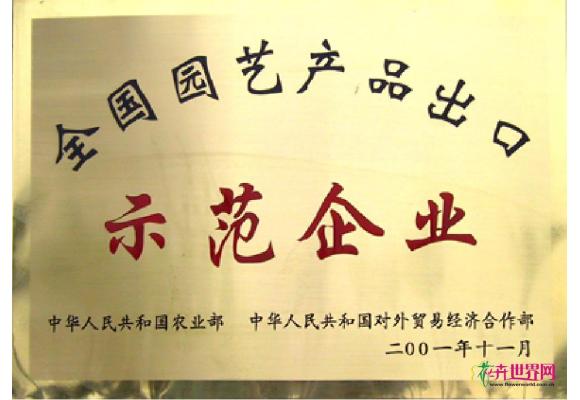 全国园艺产品出口
示范企业
中华人民共和国农业部 中华人民共和国对外贸易经济合作部
二00一年十一月
花卉世界网
www.flowerworld.com.cn